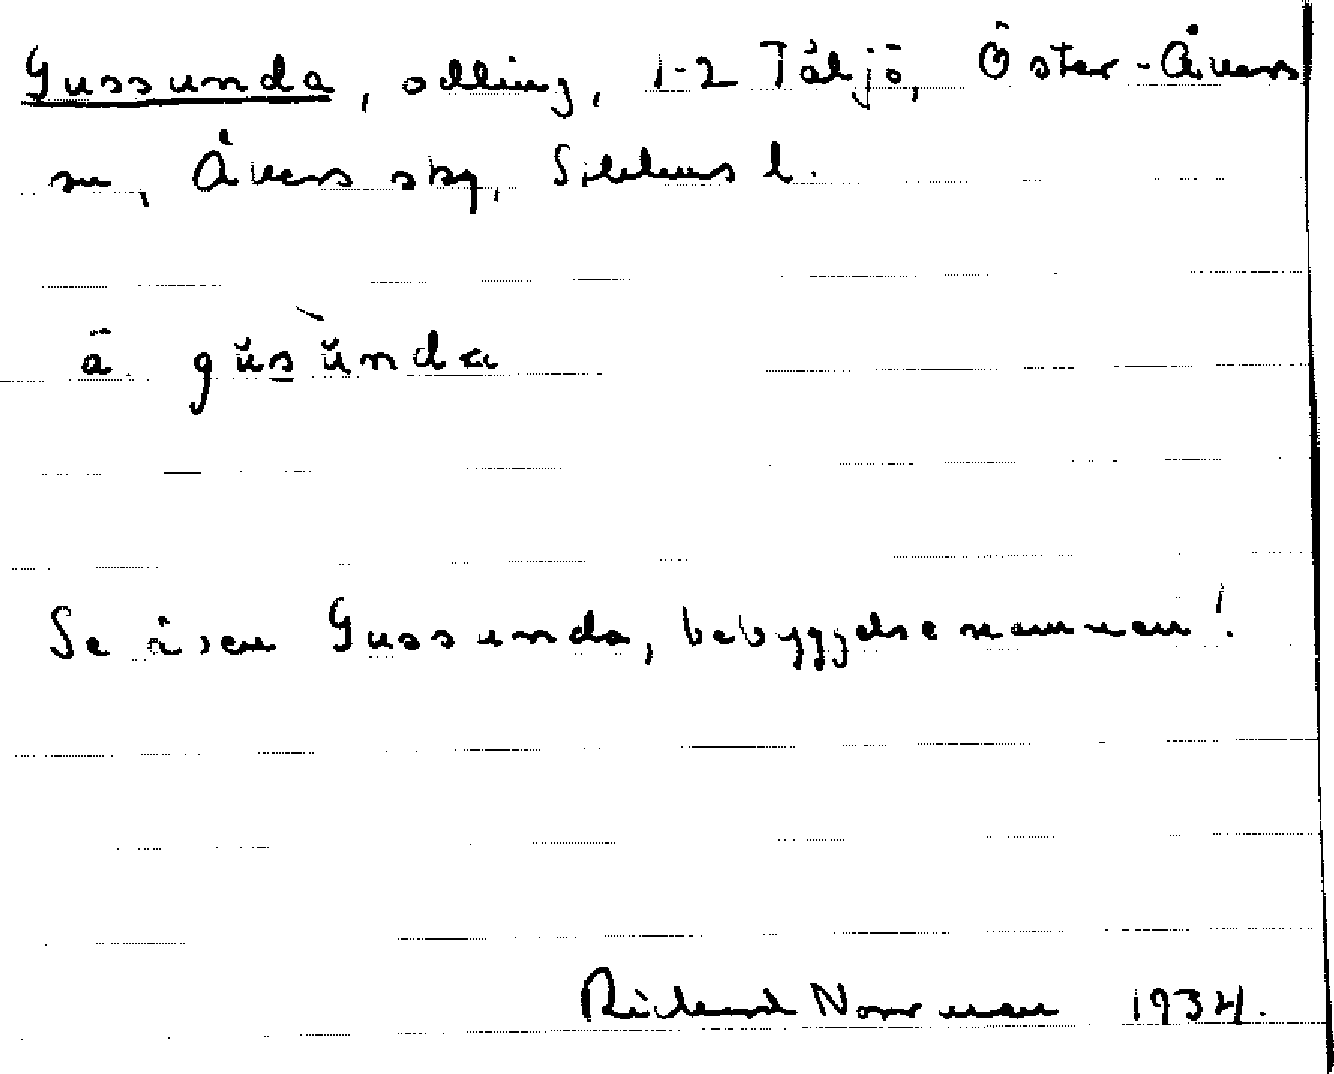 Gussunda, odling, 1-2 Täljö, Öster-Åkers
sn, Åkers skg, Sthlms l.
å gŭsŭnda
Se även Gussunda, bebyggelsenamnen!
Rickard Norrman 1934.